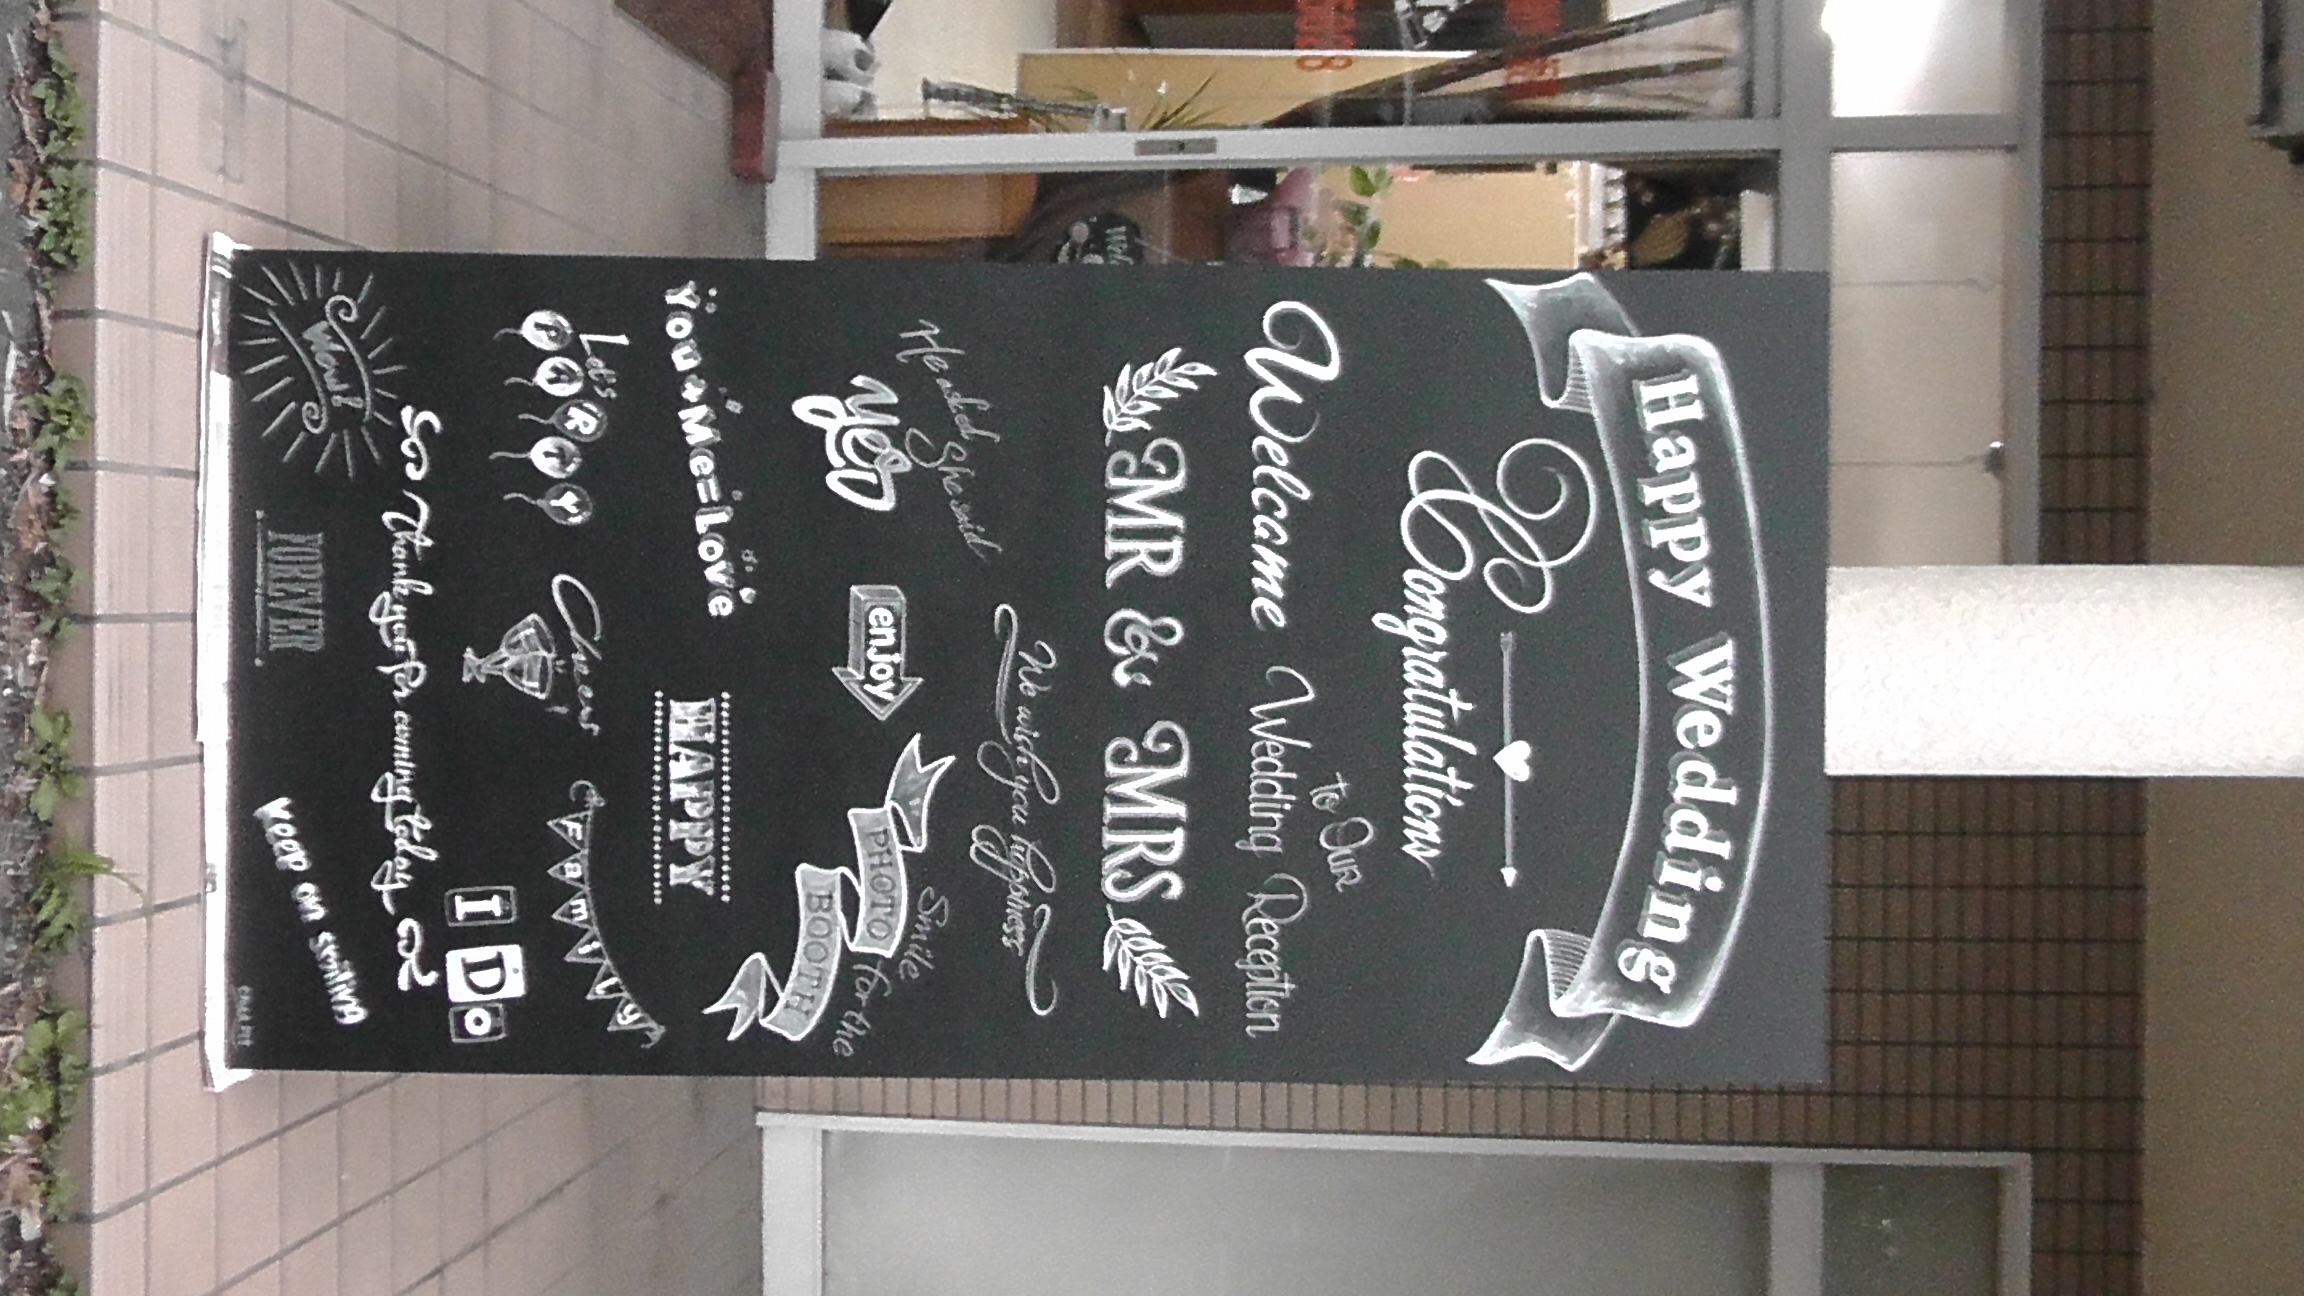 Happy Wedding
Congratulations
Welcome to Our
Wedding Reception
MR & MRS
We wish you happiness
He asked She said
yes
enjoy
Smile for the
PHOTO
BOOTH
You+Me=Love
HAPPY
Let's
PARTY
Cheers
Family
I Do
So Thank you for coming today
Wow!
FOREVER
KEEP ON SMILING